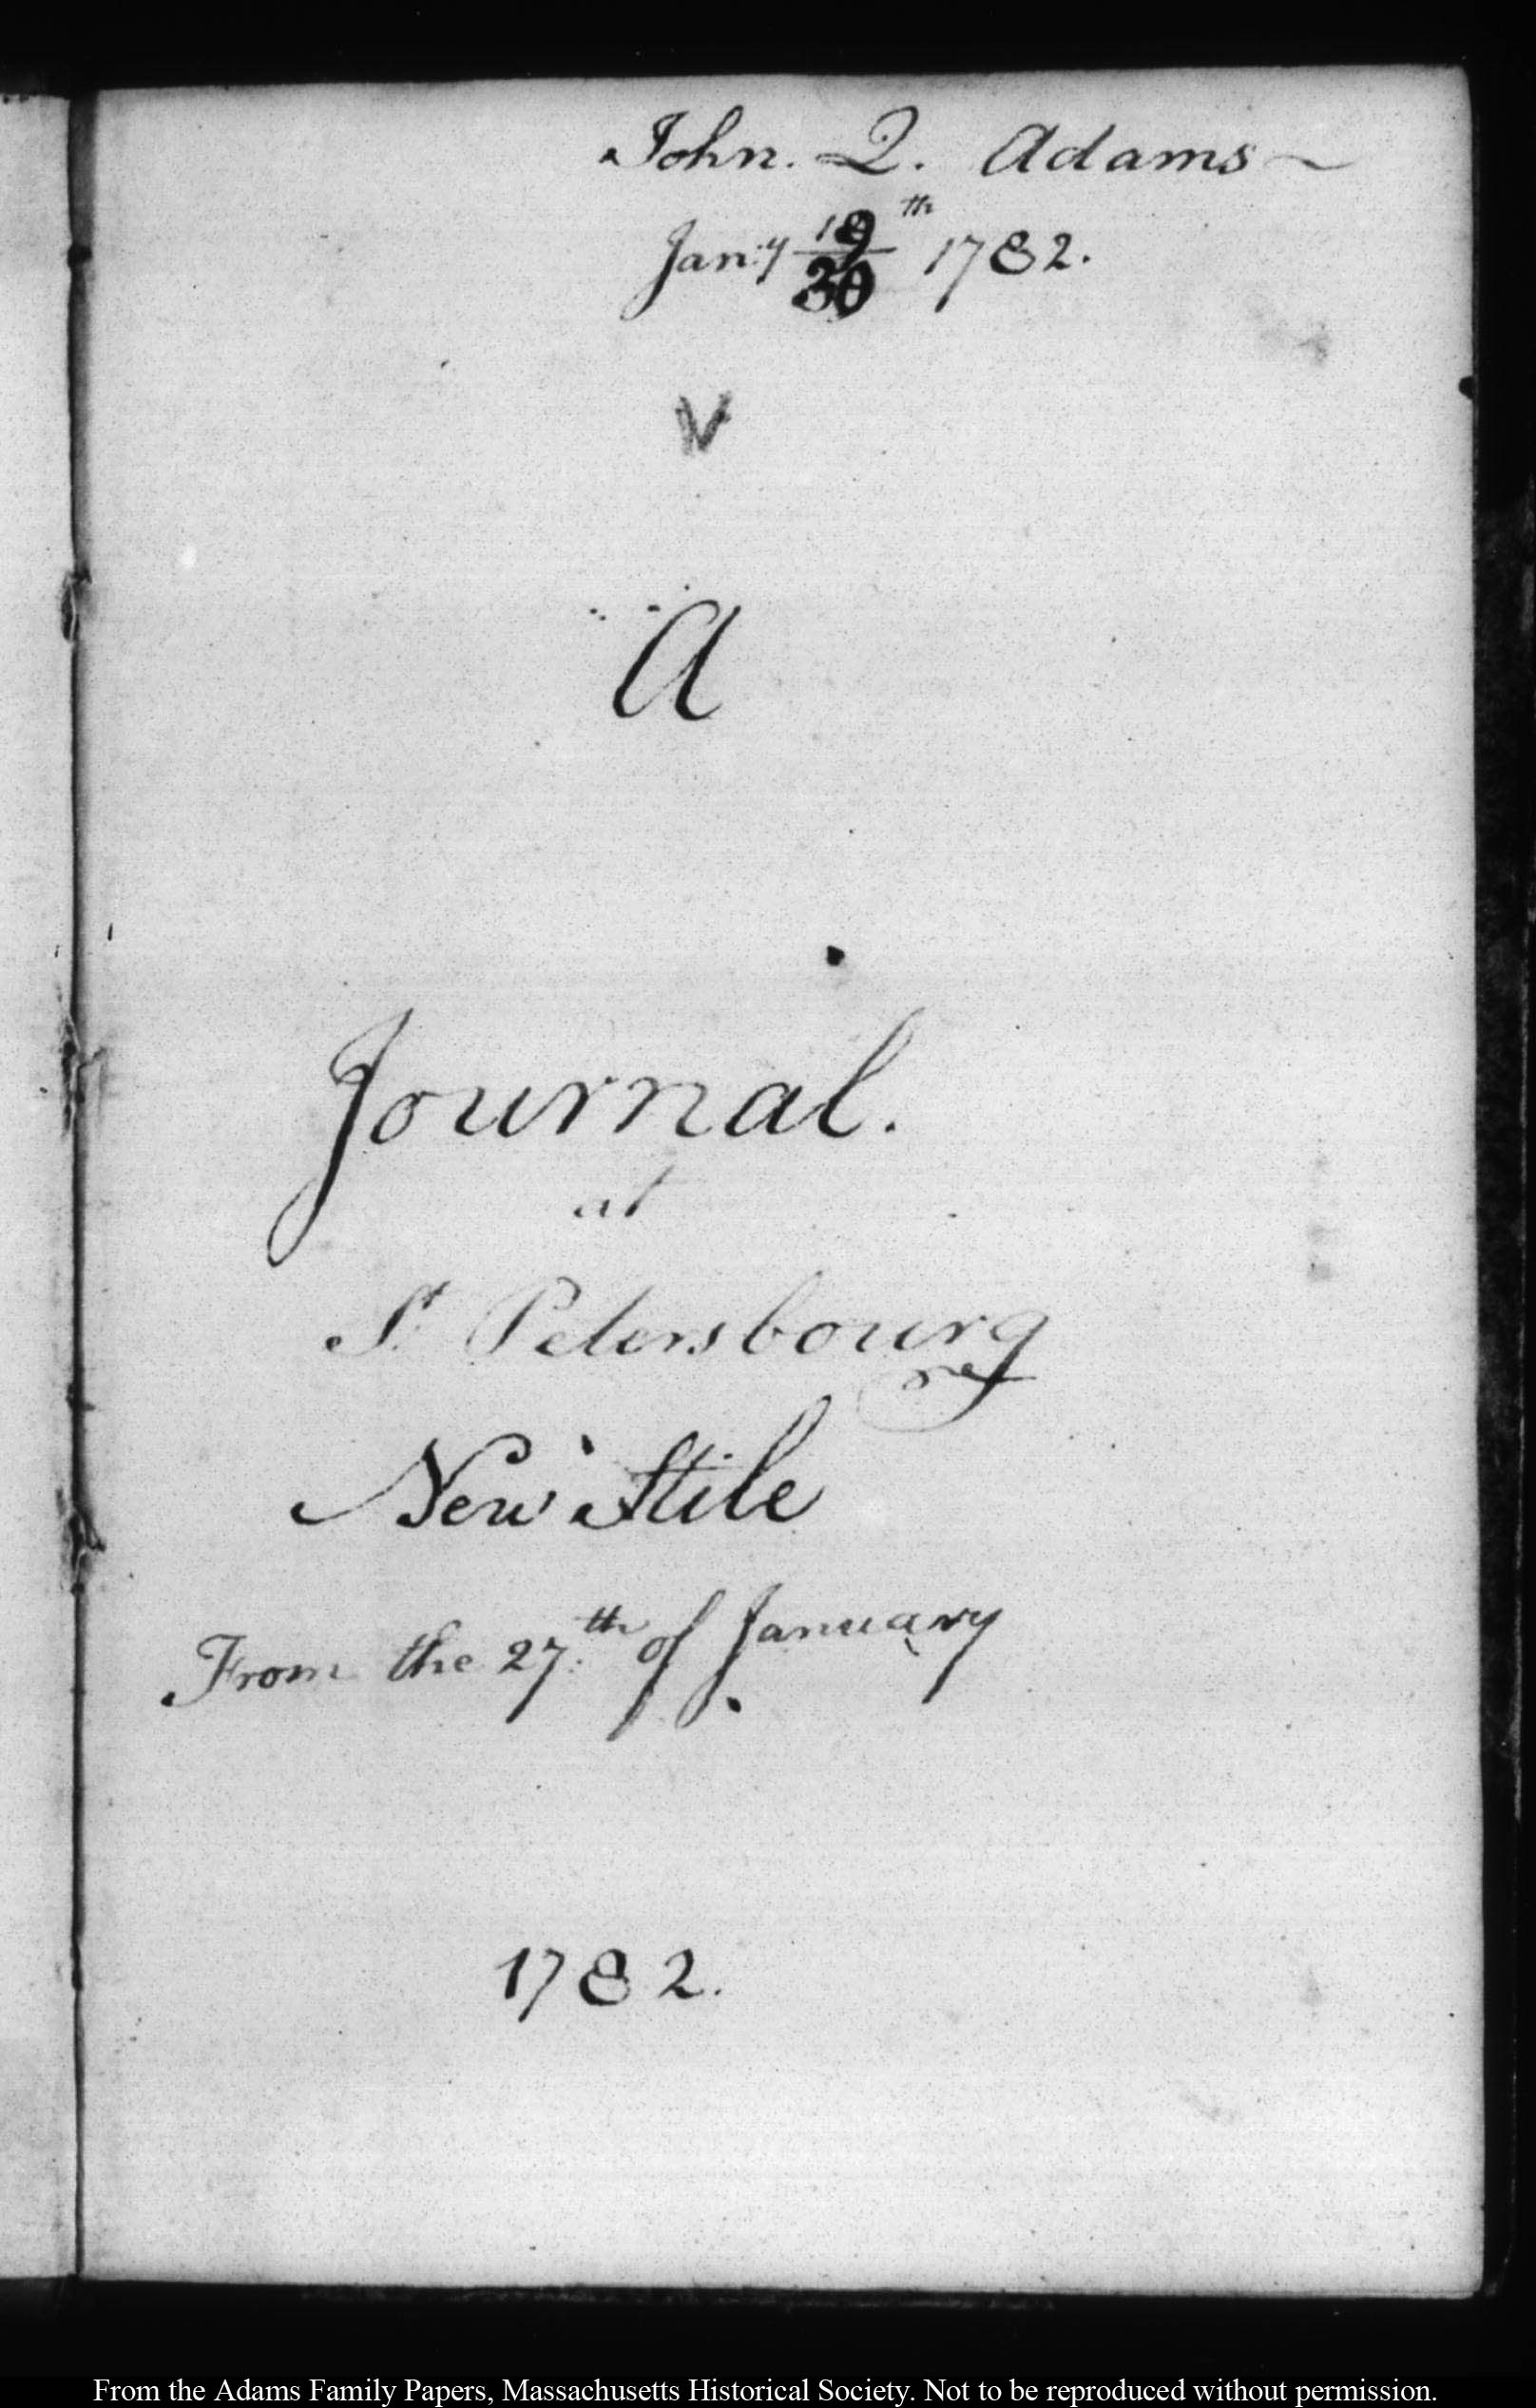 John. Q. Adams
Jan:y 19/30th 1782.
V
A
Journal.
at
St. Petersbourg
New Stile
From the 27:th of January
1782.
From the Adams Family Papers, Massachusetts Historical Society. Not to be reproduced without permission.